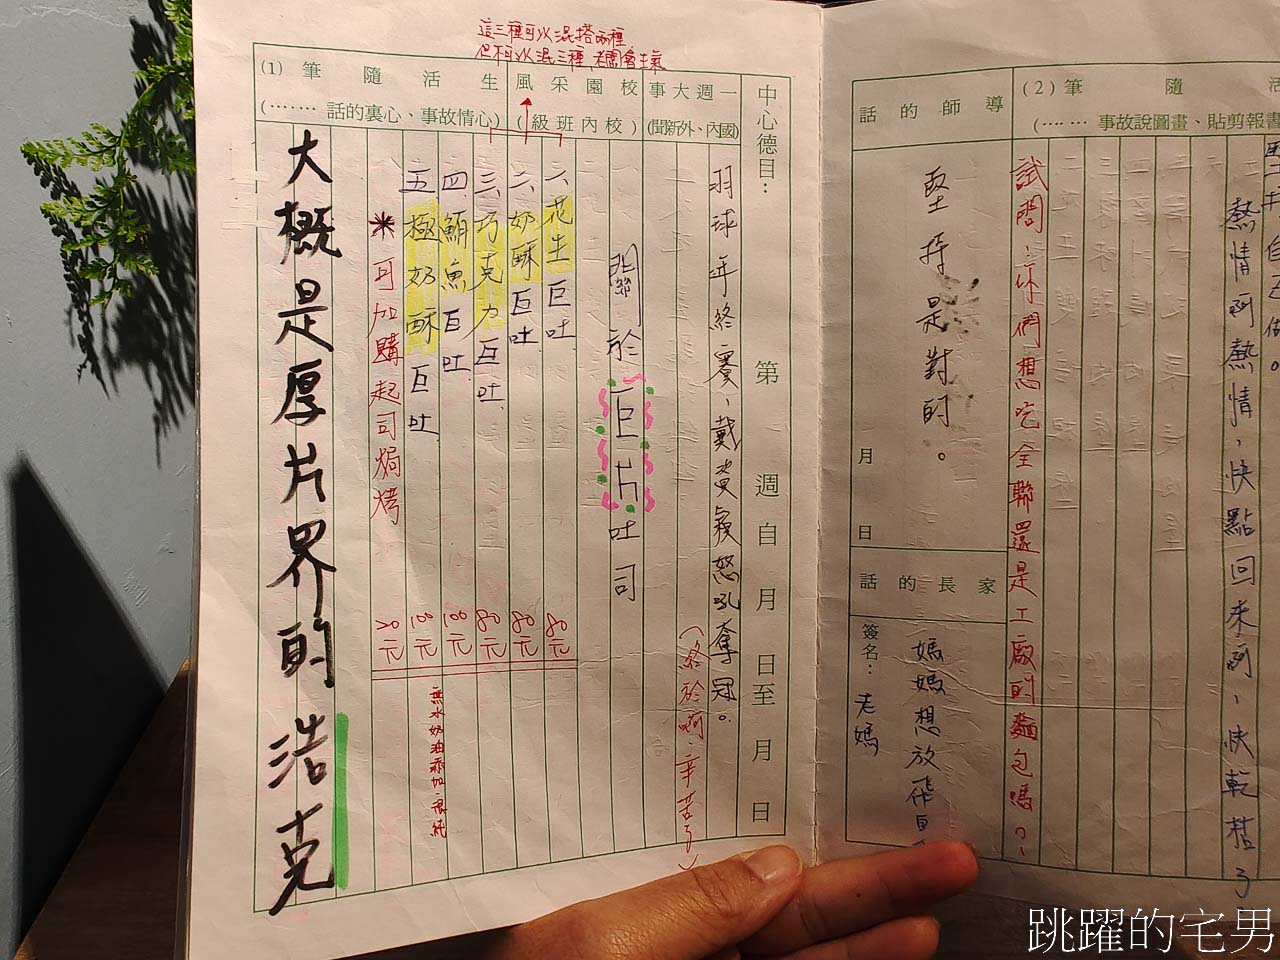 這三種可以混搭兩種
但不可以混三種,老闆會生氣
中心德目：
第 週自 月 日至 月 日
一週大事
(國內、外新聞)
校園采風
(校內班級)
生活隨筆 (1)
(心情故事、心裏的話 ……)
羽球年終賽,戴資穎怒吼奪冠。
(終於啊,辛苦了)
關於巨片吐司
一、花生巨吐 80元
二、奶酥巨吐 80元
三、巧克力巨吐 80元
四、鮪魚巨吐 100元
五、極奶酥巨吐 100元
無水奶油添加,很純
*可加購起司焗烤 20元
大概是厚片界的浩克
隨筆 (2)
剪報貼、畫圖說故事 ……)
自己做。
熱情啊熱情,快點回來啊,快乾枯了
試問:你們想吃全聯還是工廠的麵包嗎?
導師的話
堅持是對的。
月 日
家長的話
媽媽想放飛自
簽名：老媽
跳躍的宅男